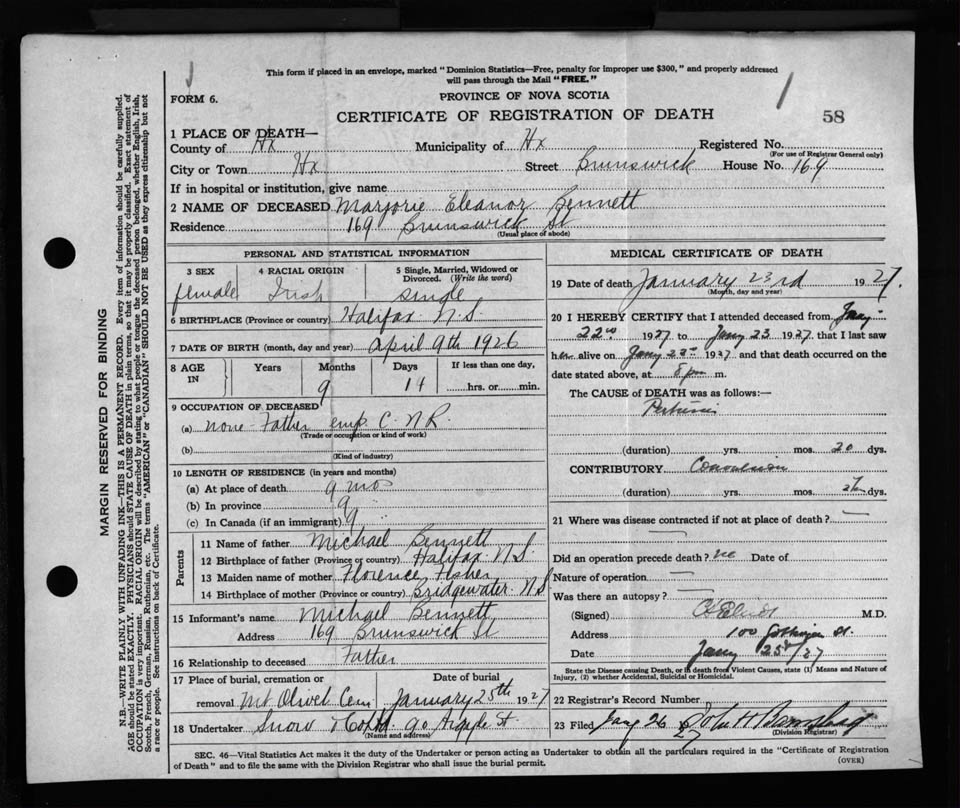 This form if placed in an envelope, marked “Dominion Statistics—Free, penalty for improper use $300,” and properly addressed
will pass through the Mail “FREE.”
FORM 6.
PROVINCE OF NOVA SCOTIA
CERTIFICATE OF REGISTRATION OF DEATH
58
1 PLACE OF DEATH—
County of Hx Municipality of Hx Registered No.
(For use of Registrar General only)
City or Town Hx Street Brunswick House No. 169
If in hospital or institution, give name
2 NAME OF DECEASED Marjorie Eleanor Bennett
Residence 169 Brunswick St
(Usual place of abode)
PERSONAL AND STATISTICAL INFORMATION
3 SEX 4 RACIAL ORIGIN 5 Single, Married, Widowed or Divorced. (Write the word)
female Irish single
6 BIRTHPLACE (Province or country) Halifax N.S.
7 DATE OF BIRTH (month, day and year) April 9th 1926
8 AGE IN Years Months Days If less than one day,
9 14 hrs. or min.
9 OCCUPATION OF DECEASED
(a) none Father emp. C.N.R.
(Trade or occupation or kind of work)
(b)
(Kind of industry)
10 LENGTH OF RESIDENCE (in years and months)
(a) At place of death 9 mos
(b) In province 9 "
(c) In Canada (if an immigrant) 9 "
Parents
11 Name of father Michael Bennett
12 Birthplace of father (Province or country) Halifax N.S.
13 Maiden name of mother Florence Fisher
14 Birthplace of mother (Province or country) Bridgewater N.S
15 Informant's name Michael Bennett
Address 169 Brunswick St
16 Relationship to deceased Father
17 Place of burial, cremation or Date of burial
removal Mt Olivet Cem January 25th 1927
18 Undertaker Snow & Co Ltd. 90 Argyle St
(Name and address)
MEDICAL CERTIFICATE OF DEATH
19 Date of death January 23rd 1927.
(Month, day and year)
20 I HEREBY CERTIFY that I attended deceased from Jany
22nd 1927 to Jany 23 1927 that I last saw
her alive on Jany 22nd 1927 and that death occurred on the
date stated above, at 8 pm m.
The CAUSE of DEATH was as follows:—
(duration) yrs. mos. 20 dys.
CONTRIBUTORY Convulsion
(duration) yrs. mos. dys.
21 Where was disease contracted if not at place of death? —
Did an operation precede death? no Date of
Nature of operation —
Was there an autopsy? —
(Signed) M.D.
Address 100 Gottingen St.
Date Jany 25th/27
State the Disease causing Death, or in death from Violent Causes, state (1) Means and Nature of
Injury, (2) whether Accidental, Suicidal or Homicidal.
22 Registrar's Record Number
23 Filed Jany 26 27 John H
(Division Registrar)
SEC. 46—Vital Statistics Act makes it the duty of the Undertaker or person acting as Undertaker to obtain all the particulars required in the “Certificate of Registration
of Death” and to file the same with the Division Registrar who shall issue the burial permit.
(OVER)
MARGIN RESERVED FOR BINDING
N.B.—WRITE PLAINLY WITH UNFADING INK—THIS IS A PERMANENT RECORD. Every item of information should be carefully supplied.
AGE should be stated EXACTLY. PHYSICIANS should STATE CAUSE OF DEATH in plain terms, so that it may be properly classified. Exact statement of
OCCUPATION is very important. RACIAL ORIGIN will be described by stating to what people or tongue the deceased person belonged, whether English, Irish,
Scotch, French, German, Russian, Ruthenian, etc. The terms “AMERICAN” or “CANADIAN” SHOULD NOT BE USED as they express citizenship but not
a race or people. See instructions on back of Certificate.